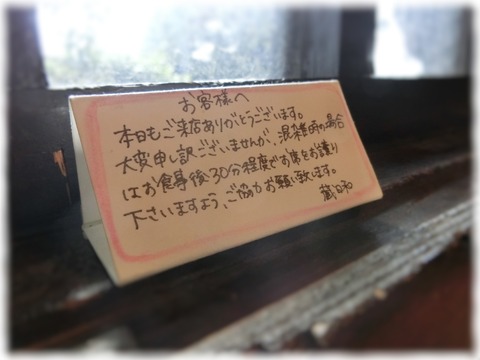 お客様へ
本日もご来店ありがとうございます。
大変申し訳ございませんが、混雑時の場合
はお食事後30分程度でお席をお譲り
下さいますよう、ご協力お願い致します。
蔵日和